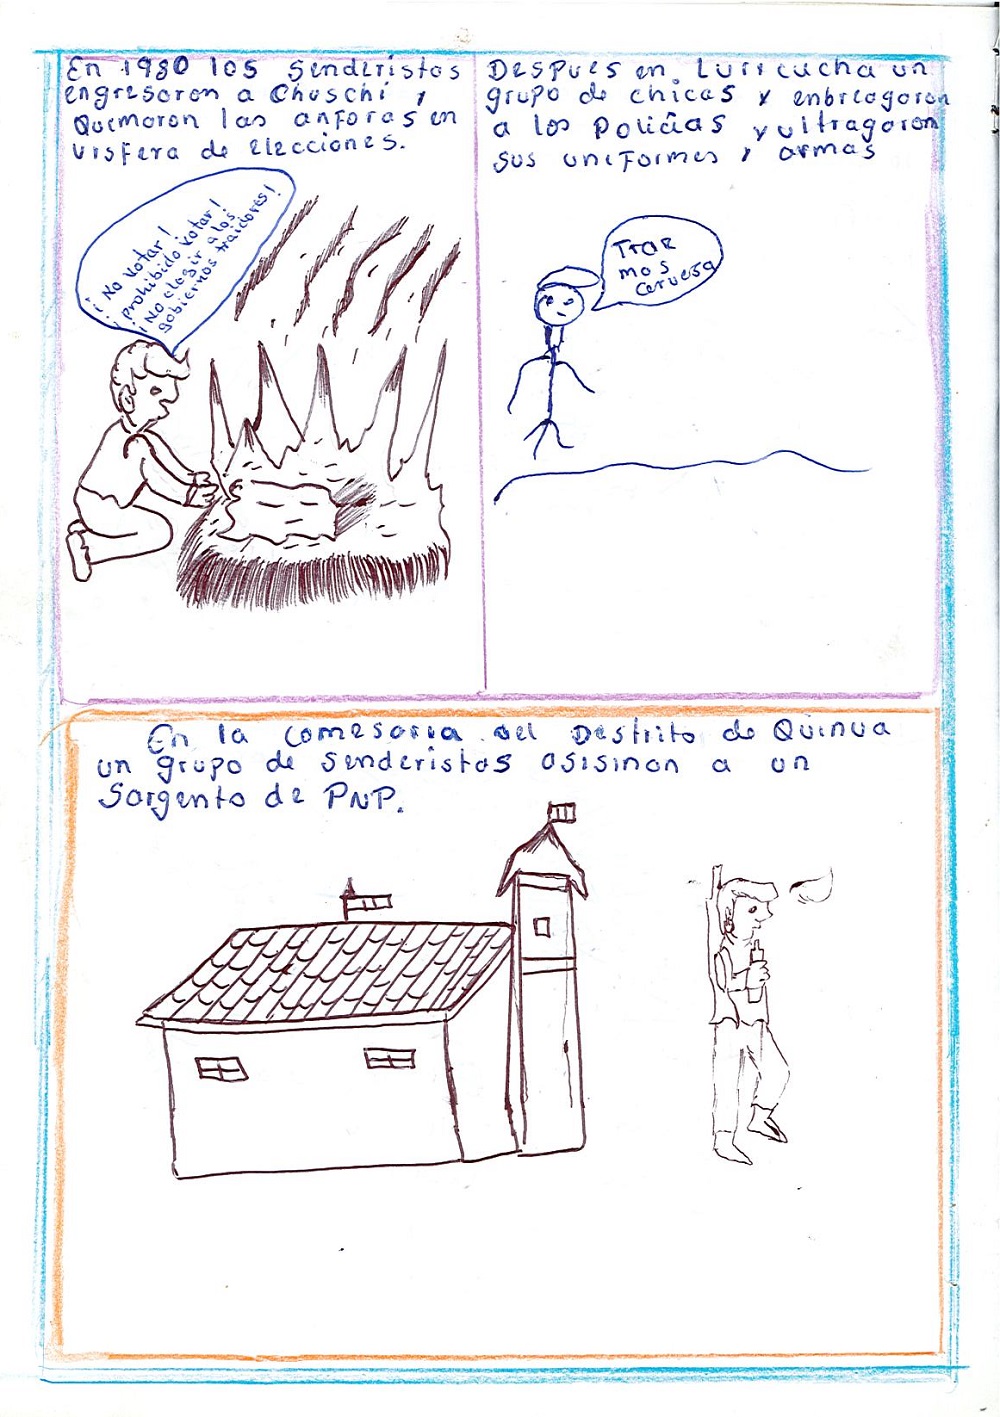 En 1980 los senderistas
engresaron a Chuschi y
Quemaron las anforas en
visfera de elecciones.
¡¡No votar!
¡prohibido votar!
¡No elegir a los
gobiernos traidores!
Despues en Luricucha un
grupo de chicas y enbreagaron
a los Policias y ultragaron
sus uniformes y armas
Trae
mos
cervesa
En la comesaria del Destrito de Quinua
un grupo de senderistas asisinan a un
Sargento de PNP.